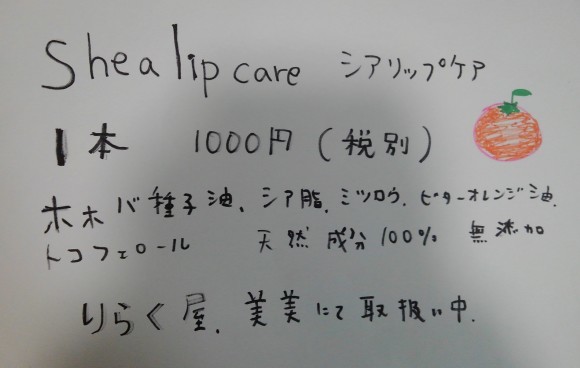 Shea lip care シアリップケア
1本 1000円（税別）
ホホバ種子油、シア脂、ミツロウ、ビターオレンジ油、
トコフェロール 天然成分100% 無添加
りらく屋、美美にて取扱い中.